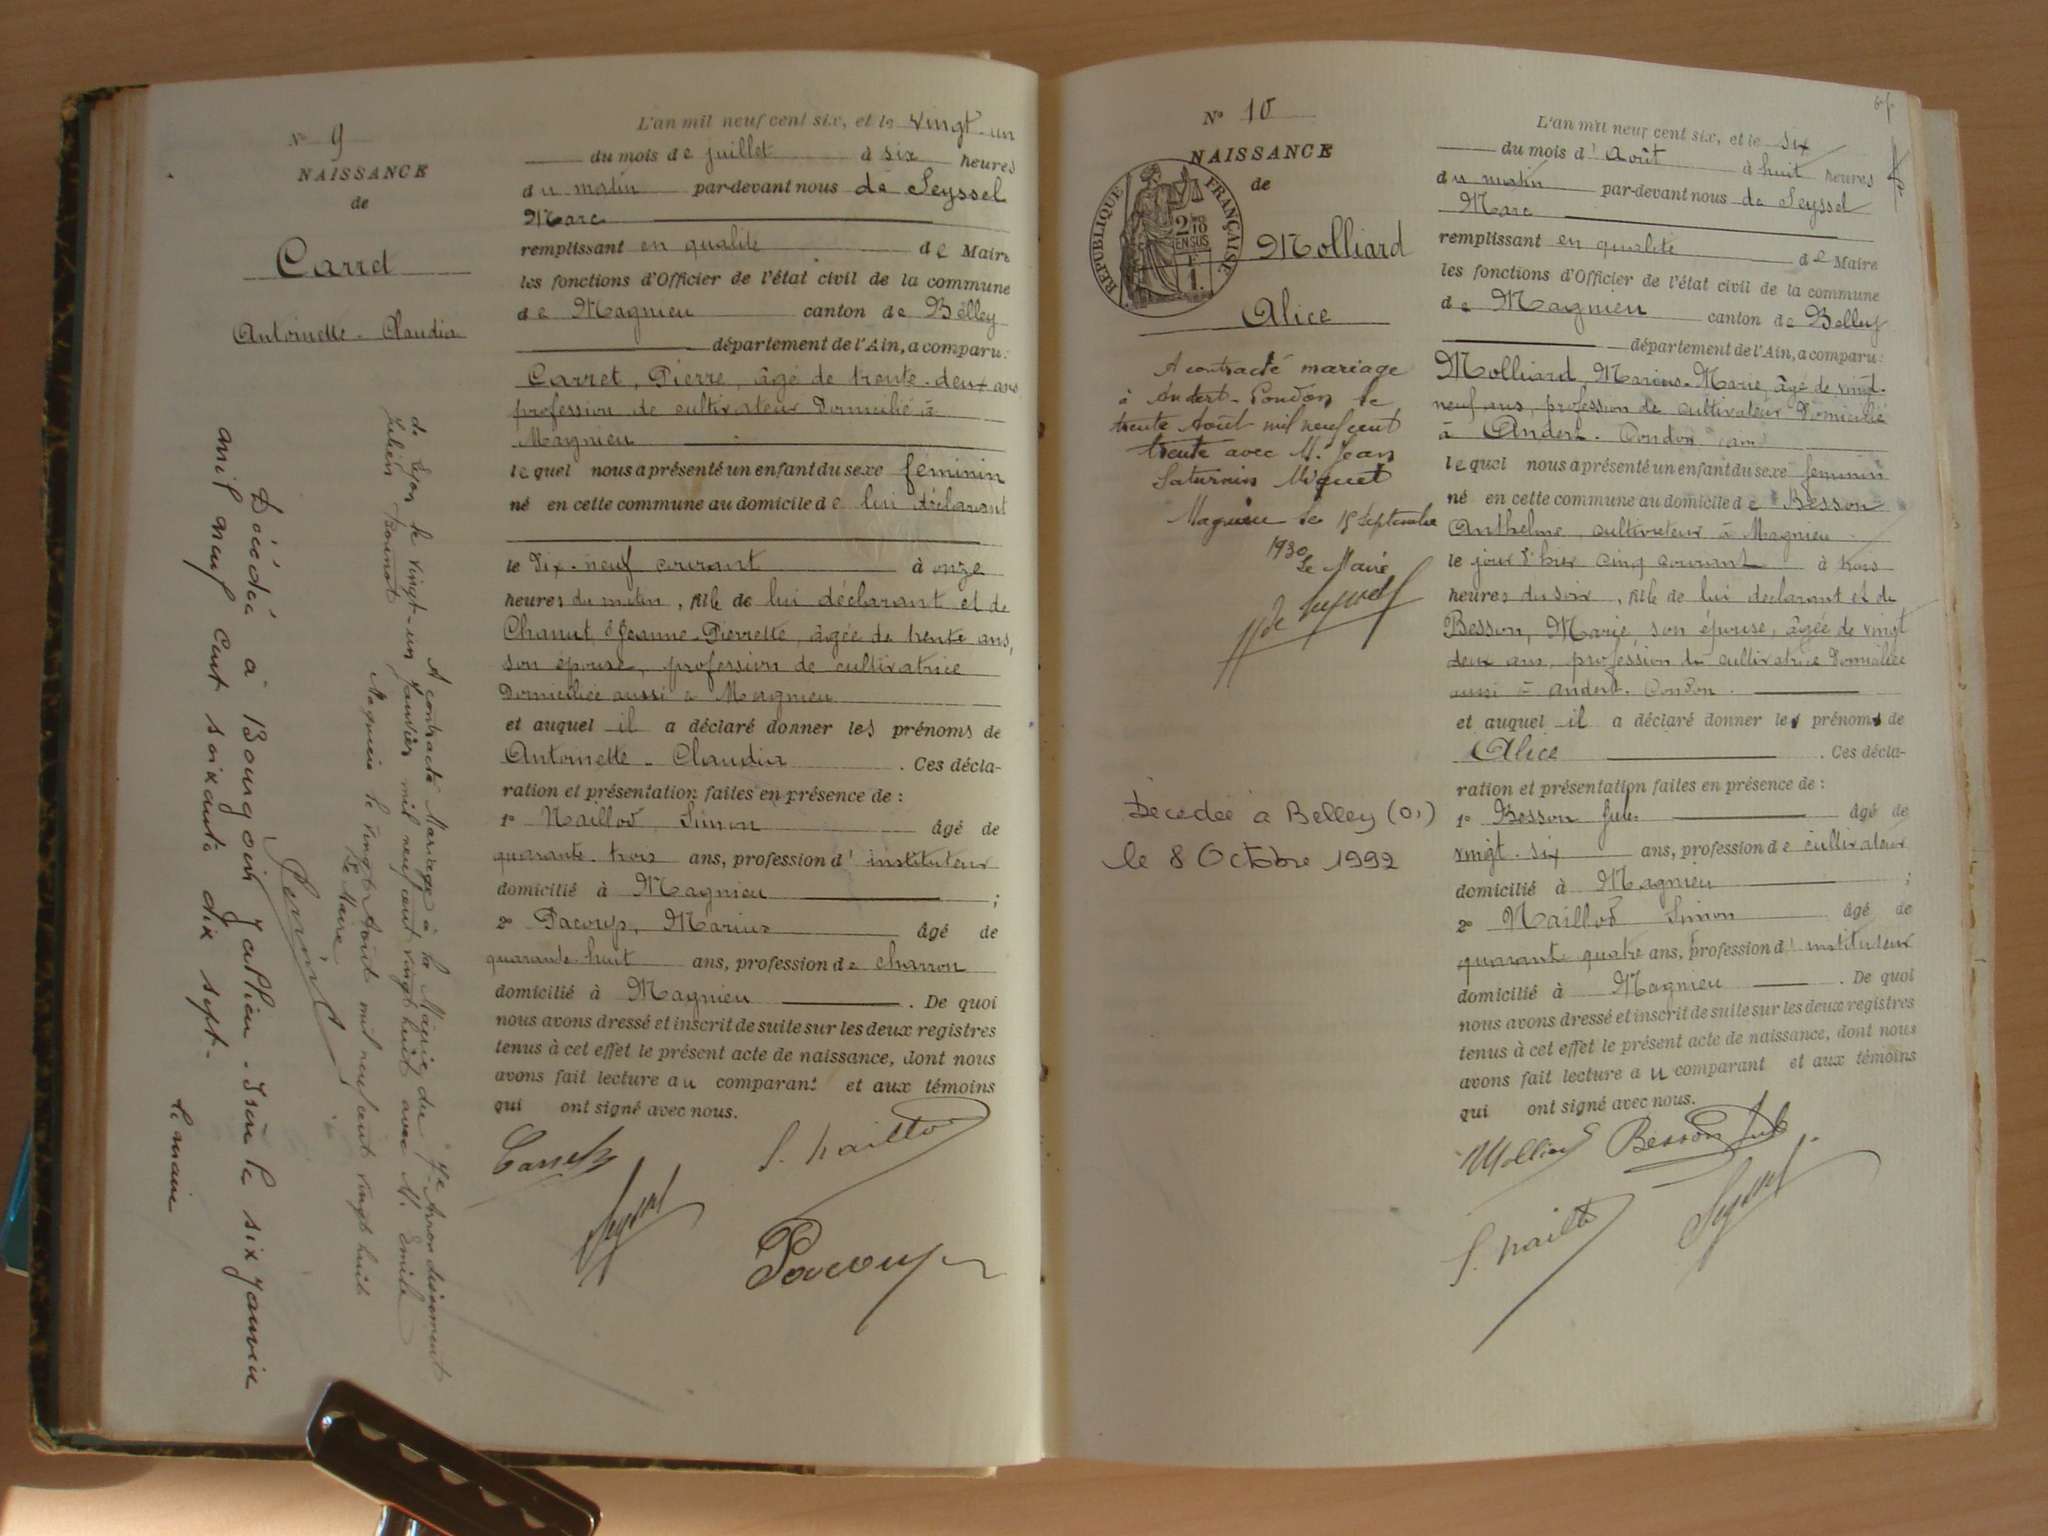 N° 9
NAISSANCE
de
Carret
Antoinette - Claudia
A contracté Mariage à la Mairie du 7e Arrondissement
de Lyon le vingt-un Janvier mil neuf cent vingt huit avec M. Emile
Julien
Magnieu le vingt Août mil neuf cent vingt huit
Le Maire
Décédée à Bourgoin Jallieu - Isère le six janvier
mil neuf cent soixante dix sept -
le maire
L'an mil neuf cent six, et le vingt-un
du mois de juillet à six heures
du matin par-devant nous de Seyssel
Marc
remplissant en qualité de Maire
les fonctions d'Officier de l'état civil de la commune
de Magnieu canton de Belley
département de l'Ain, a comparu:
Carret, Pierre, âgé de trente-deux ans
profession de cultivateur domicilié à
Magnieu
lequel nous a présenté un enfant du sexe féminin
né en cette commune au domicile de lui déclarant
le dix-neuf courant à onze
heures du matin, fille de lui déclarant et de
Chanut, Jeanne-Pierrette, âgée de trente ans,
son épouse, profession de cultivatrice
domiciliée aussi à Magnieu
et auquel il a déclaré donner les prénoms de
Antoinette - Claudia. Ces décla-
ration et présentation faites en présence de :
1° Naillod, Simon âgé de
quarante-trois ans, profession d'instituteur
domicilié à Magnieu ;
2° Pacoup, Marius âgé de
quarante-huit ans, profession de charron
domicilié à Magnieu. De quoi
nous avons dressé et inscrit de suite sur les deux registres
tenus à cet effet le présent acte de naissance, dont nous
avons fait lecture au comparant et aux témoins
qui ont signé avec nous.
Carret
S. Naillod
Seyssel
Pacoup
N° 10
NAISSANCE
de
RÉPUBLIQUE FRANÇAISE
2/10 EN SUS
1 F.
Molliard
Alice
A contracté mariage
à Andert-Condon le
trente Août mil neuf cent
trente avec M. Jean
Saturnin Miguet
Magnieu le 15 Septembre
1930
Le Maire
de Seyssel
Décédée à Belley (01)
le 8 Octobre 1992
L'an mil neuf cent six, et le six
du mois d'Août à huit heures
du matin par-devant nous de Seyssel
Marc
remplissant en qualité de Maire
les fonctions d'Officier de l'état civil de la commune
de Magnieu canton de Belley
département de l'Ain, a comparu:
Molliard, Marius-Marie, âgé de vingt-
neuf ans, profession de cultivateur domicilié
à Andert-Condon (ain)
lequel nous a présenté un enfant du sexe féminin
né en cette commune au domicile de Besson
Anthelme, cultivateur à Magnieu
le jour d'hier cinq courant à trois
heures du soir, fille de lui déclarant et de
Besson, Marie, son épouse, âgée de vingt
deux ans, profession de cultivatrice domiciliée
aussi à Andert-Condon.
et auquel il a déclaré donner les prénoms de
Alice. Ces décla-
ration et présentation faites en présence de :
1° Besson Jules âgé de
vingt-six ans, profession de cultivateur
domicilié à Magnieu ;
2° Naillod Simon âgé de
quarante quatre ans, profession d'instituteur
domicilié à Magnieu. De quoi
nous avons dressé et inscrit de suite sur les deux registres
tenus à cet effet le présent acte de naissance, dont nous
avons fait lecture au comparant et aux témoins
qui ont signé avec nous.
Molliard Besson Jules
S. Naillod Seyssel